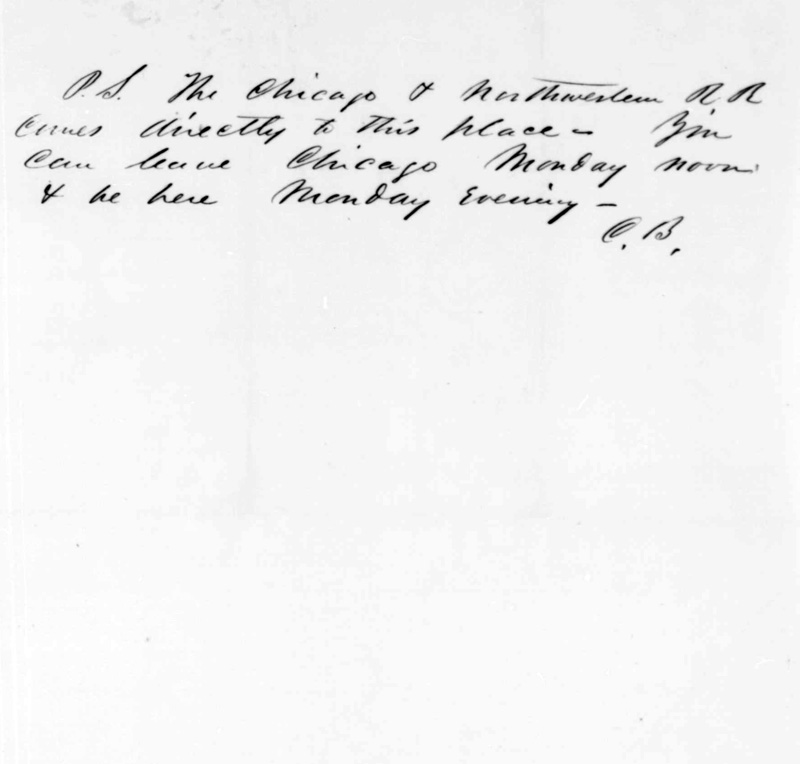 P.S. The Chicago & Northwestern R R
comes directly to this place – You
can leave Chicago Monday noon
& be here Monday Evening –
C. B.